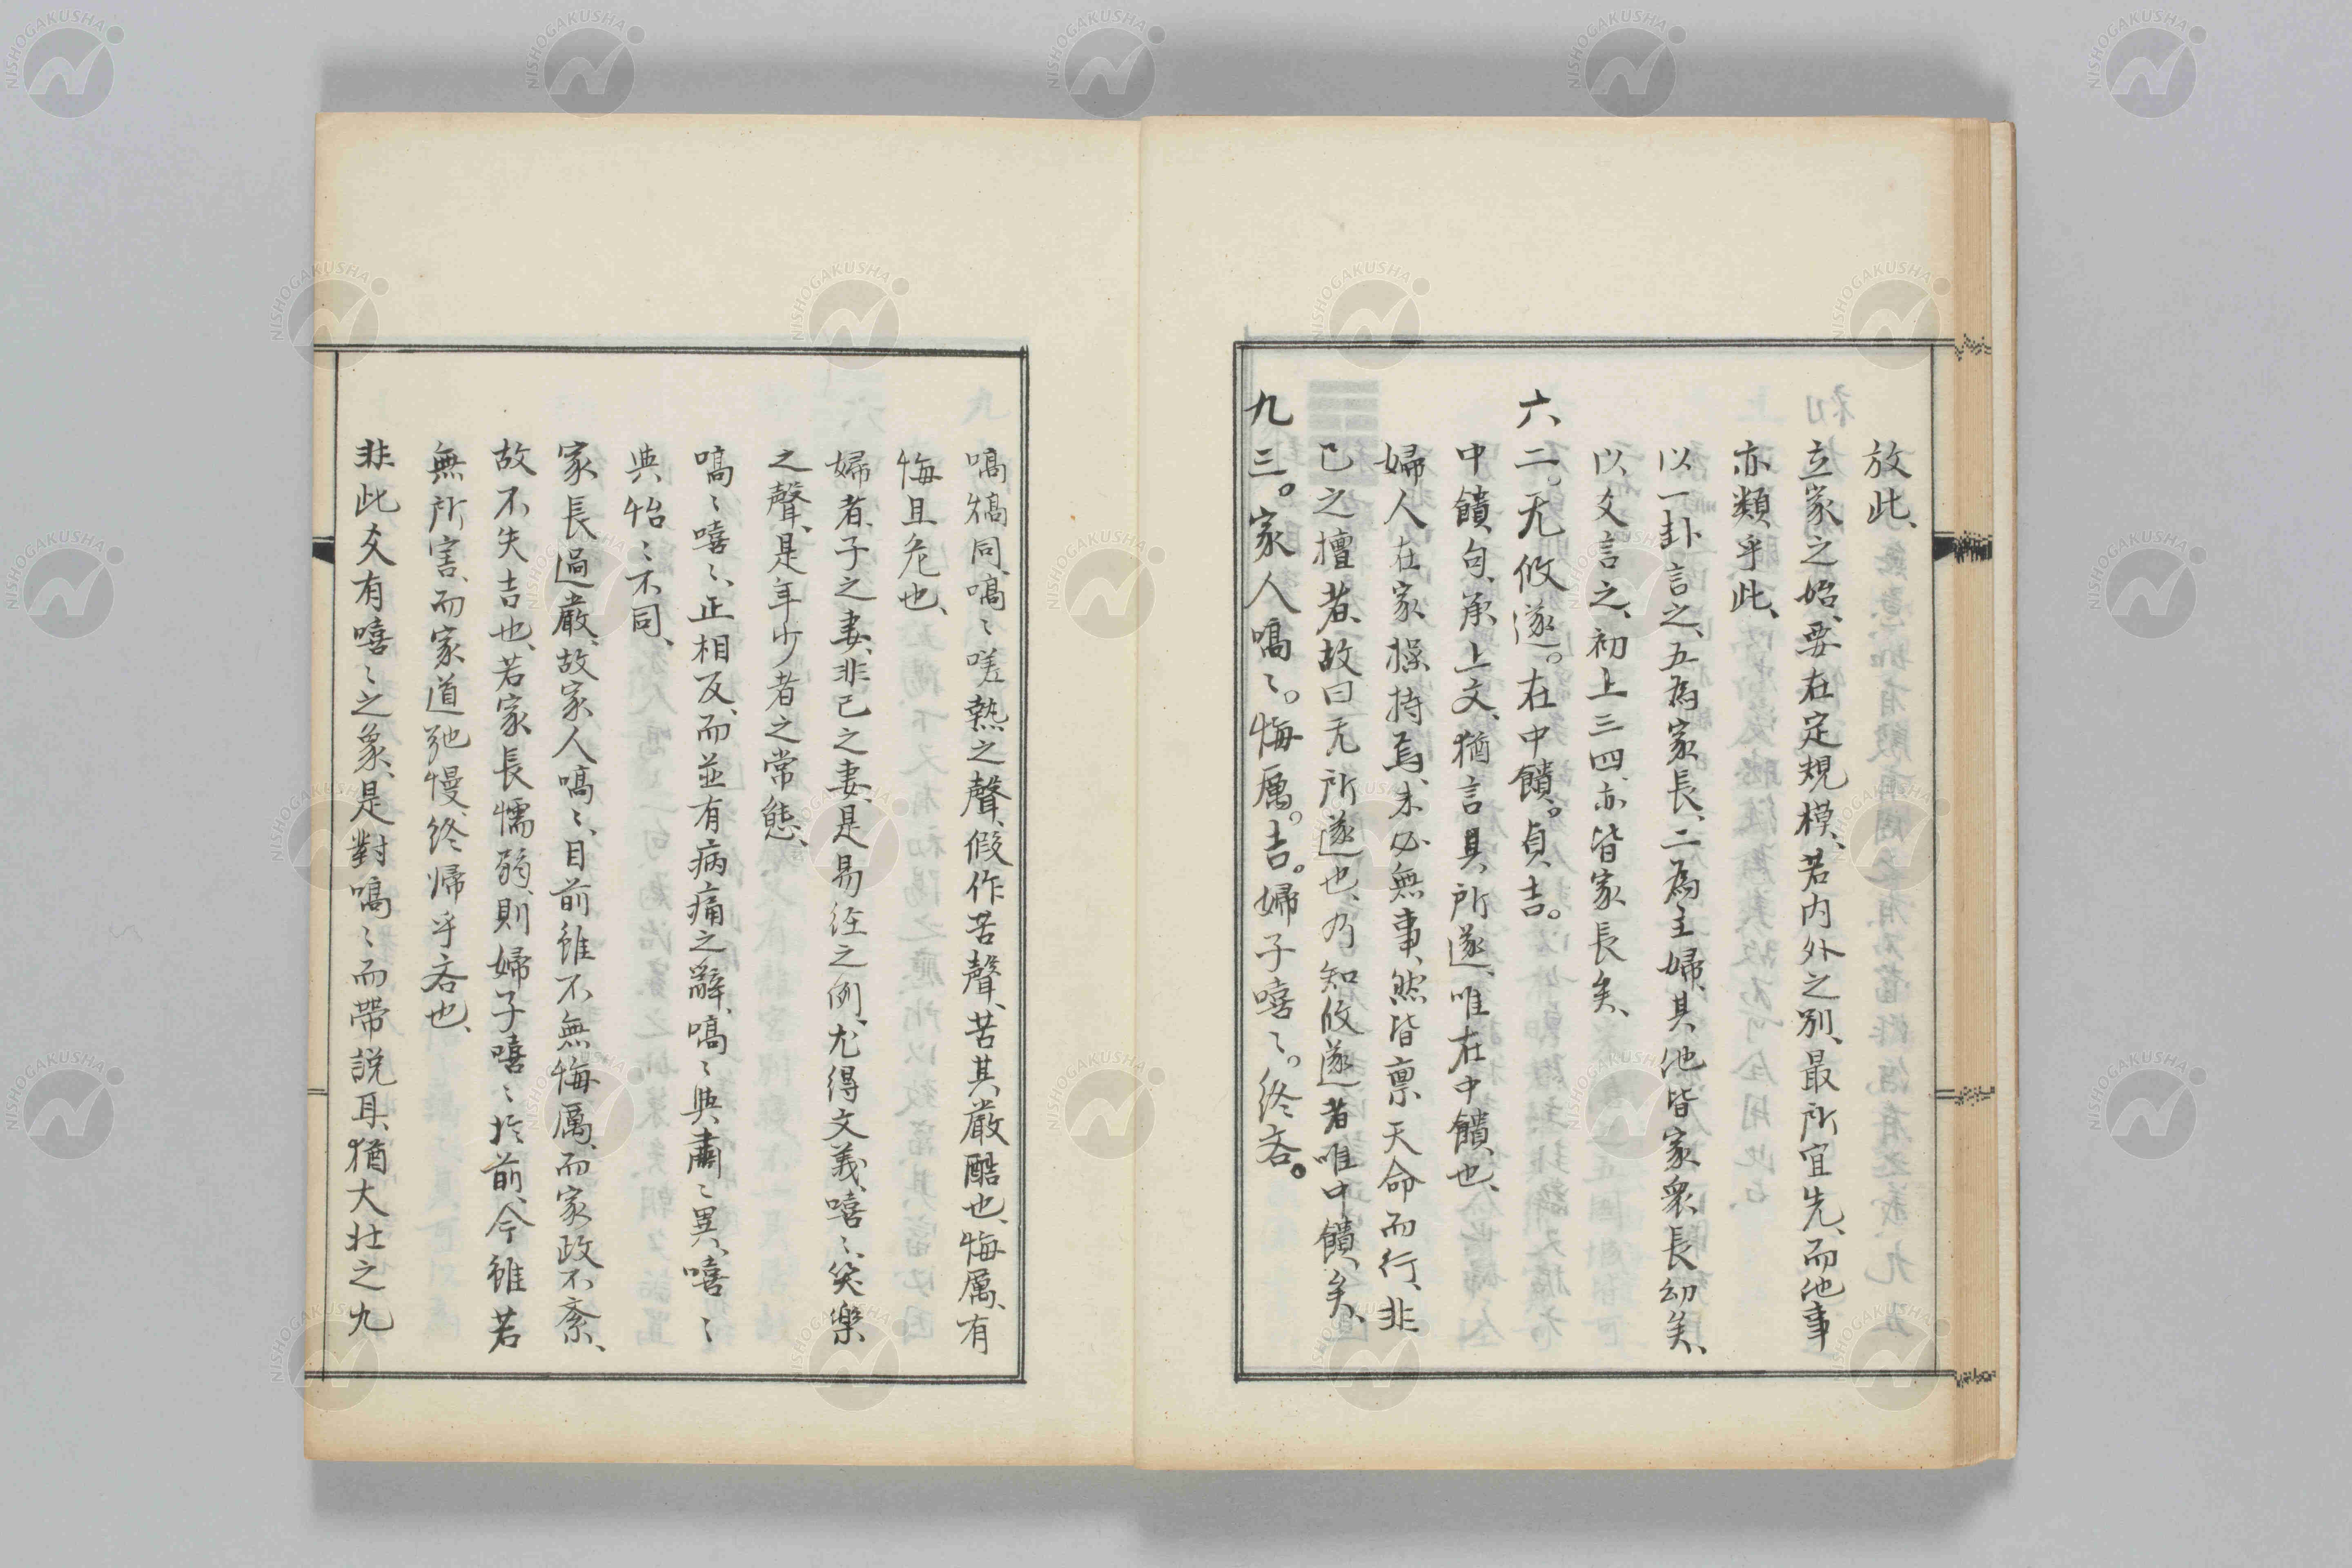 放此、
立家之始、要在定規模、若内外之別、最所宜先、而他事
亦類乎此、
以一卦言之、五為家長、二為主婦、其他皆家衆長幼矣、
以爻言之、初上三四、亦皆家長矣、
六二。无攸遂。在中饋。貞吉。
中饋句、承上文、猶言其所遂、唯在中饋也、
婦人在家操持焉、未必無事、然皆禀天命而行、非
己之擅者、故曰无所遂也、乃知攸遂者唯中饋矣、
九三。家人嗃〻。悔厲。吉。婦子嘻〻。終吝。
嗃熇同、嗃〻嗟熱之聲、假作苦聲、苦其嚴酷也、悔厲、有
悔且危也、
婦者、子之妻、非己之妻、是易経之例、尤得文義、嘻〻、笑樂
之聲、是年少者之常態、
嗃〻嘻〻、正相反、而並有病痛之辭、嗃〻與肅〻異、嘻〻
與怡〻不同、
家長過嚴、故家人嗃〻、目前雖不無悔厲、而家政不紊、
故不失吉也、若家長懦弱、則婦子嘻〻於前、今雖若
無所害、而家道弛慢、終帰乎吝也、
非此爻有嘻〻之象、是對嗃〻而帶説耳、猶大壮之九
NISHOGAKUSHA